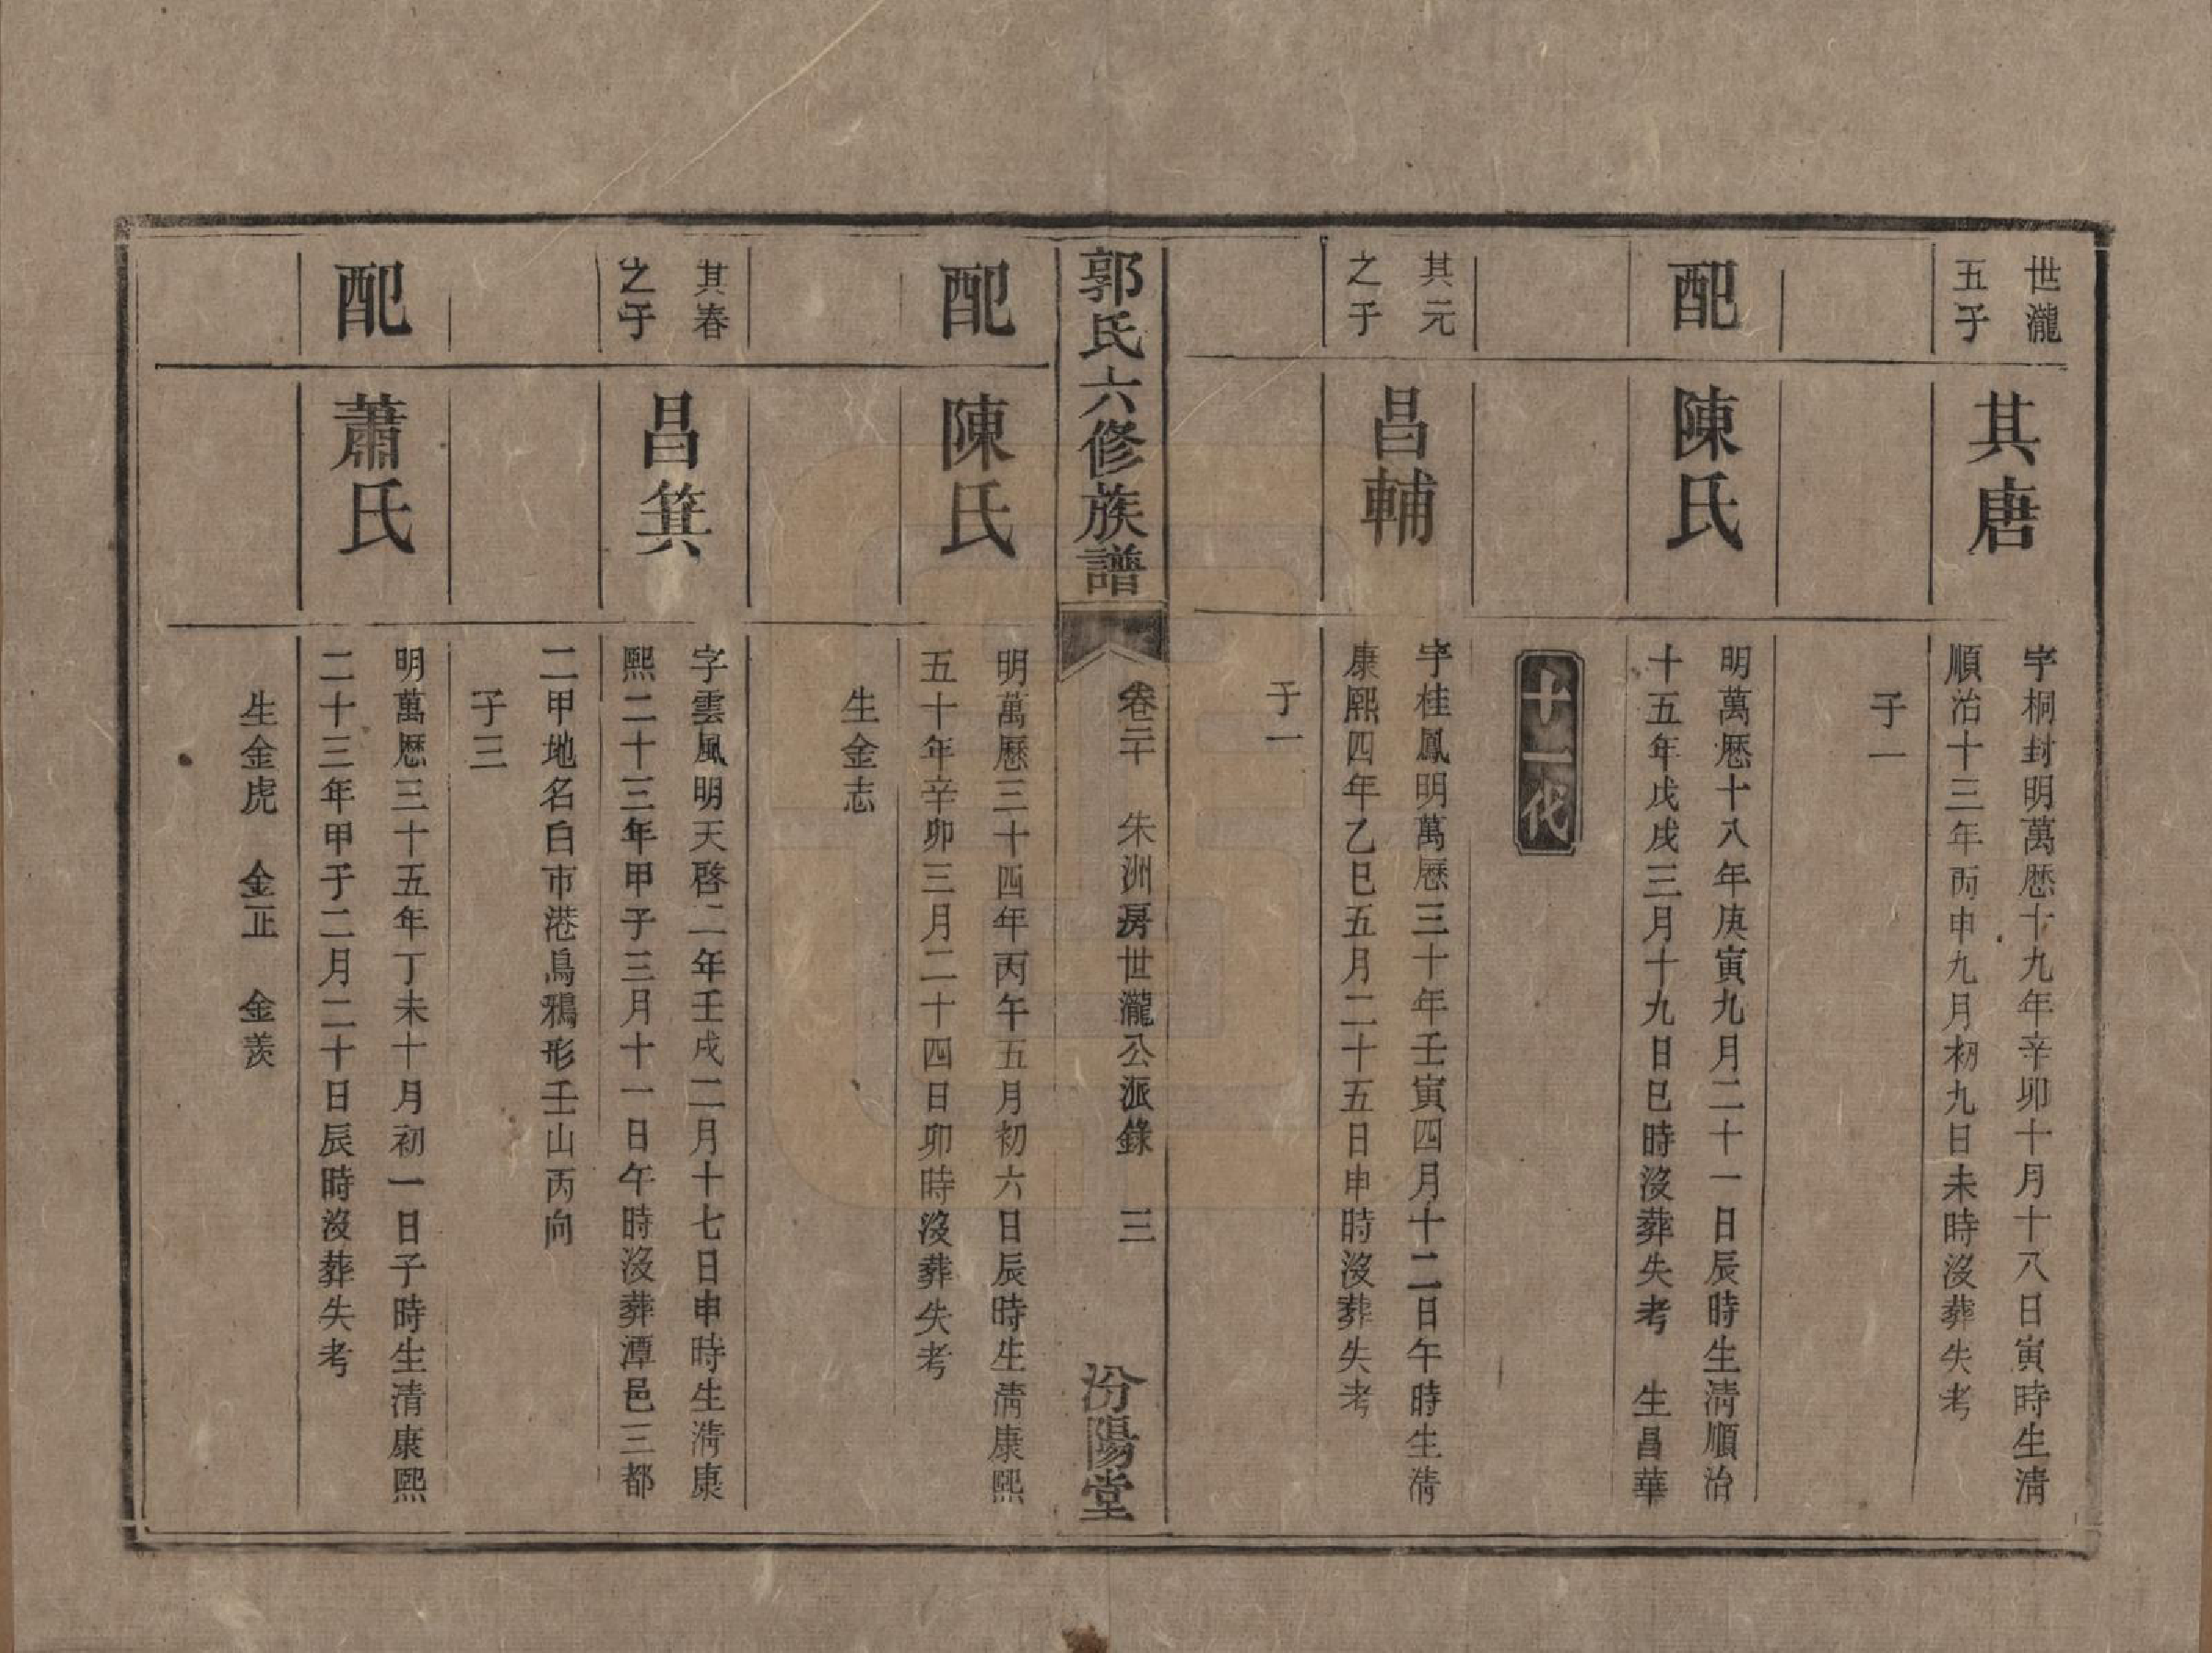 世瀧
五子
其唐
字桐封明萬歷十九年辛卯十月十八日寅時生清
順治十三年丙申九月初九日未時沒葬失考
子一
配
陳氏
明萬歷十八年庚寅九月二十一日辰時生清順治
十五年戊戌三月十九日巳時沒葬失考　生昌華
十一代
其元
之子
昌輔
字桂鳳明萬歷三十年壬寅四月十二日午時生清
康熙四年乙巳五月二十五日申時沒葬失考
子一
郭氏六修族譜
卷二十　朱洲房世瀧公派錄　三
汾陽堂
配
陳氏
明萬歷三十四年丙午五月初六日辰時生清康熙
五十年辛卯三月二十四日卯時沒葬失考
生金志
其春
之子
昌箕
字雲風明天啓二年壬戌二月十七日申時生清康
熙二十三年甲子三月十一日午時沒葬潭邑三都
二甲地名白市港烏鴉形壬山丙向
子三
配
蕭氏
明萬歷三十五年丁未十月初一日子時生清康熙
二十三年甲子二月二十日辰時沒葬失考
生金虎　金正　金羨